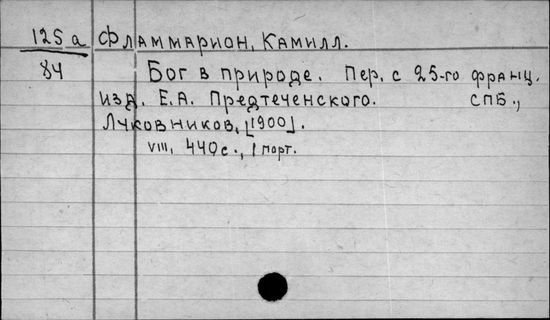 125 а Фламмарион, Камилл.
84 Бог в природе. Пер. с 25-го франц.
изд. Е.А. Предтеченского. СПБ.,
Луковников, [1900].
VIII, 440 с., 1 порт.